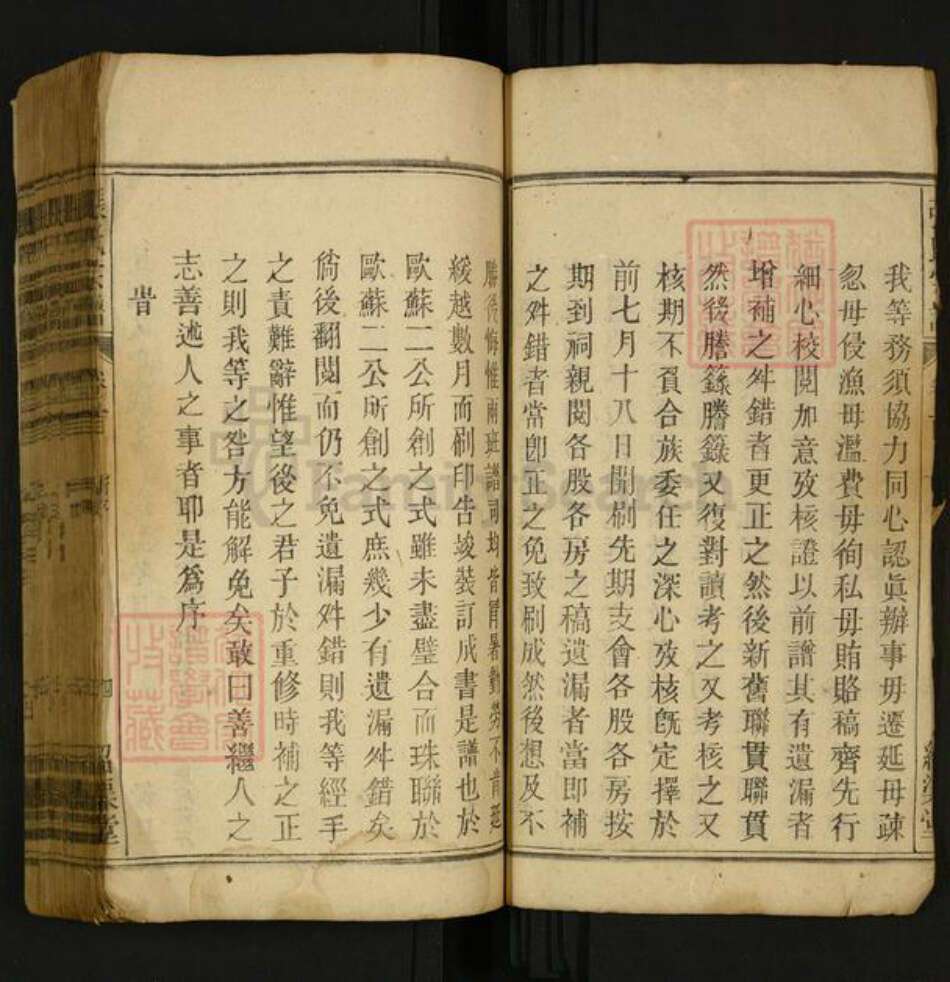 我等務須協力同心認眞辦事毋遷延毋疎
忽毋侵漁毋濫費毋徇私毋賄賂稿齊先行
細心校閱加意攷核證以前譜其有遺漏者
增補之舛錯者更正之然後新舊聯貫聯貫
然後謄籙謄籙又復對讀考之又考核之又
核期不負合族委任之深心攷核旣定擇於
前七月十八日開刷先期支會各股各房按
期到祠親閱各股各房之稿遺漏者當即補
之舛錯者當卽正之免致刷成然後想及不
勝後悔惟兩班譜司均皆冒暑勤勞不肯延
緩越數月而刷印告竣裝訂成書是譜也於
歐蘇二公所創之式雖未盡璧合而珠聯於
歐蘇二公所創之式庶幾少有遺漏舛錯矣
倘後翻閱而仍不免遺漏舛錯則我等經手
之責難辭惟望後之君子於重修時補之正
之則我等之咎方能解免矣敢曰善繼人之
志善述人之事者耶是爲序
旹
四
FamilySearch